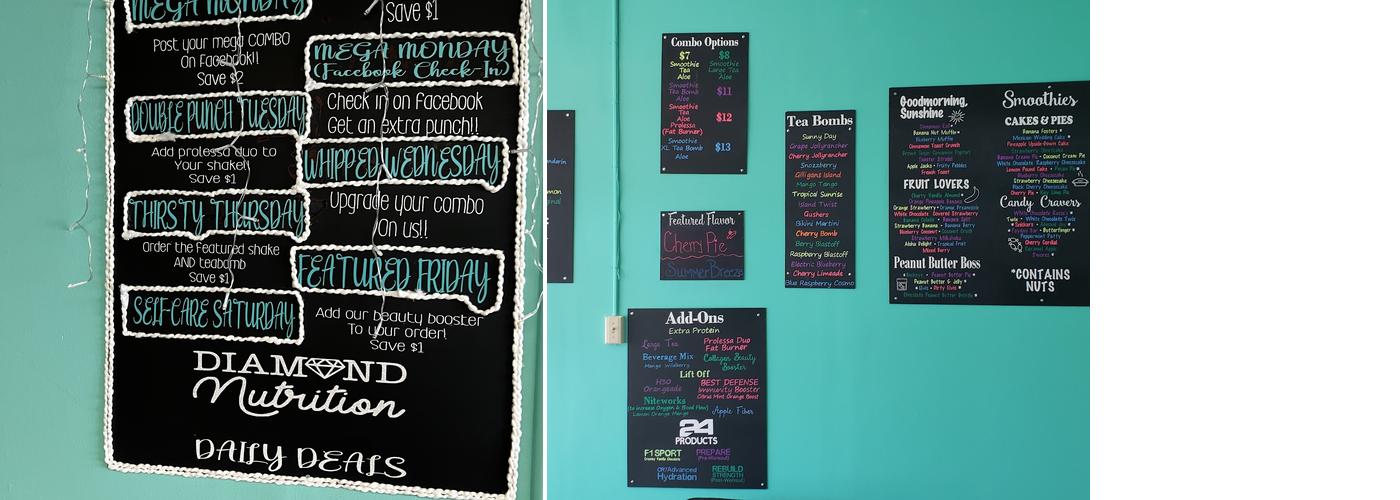 MEGA MONDAY
Save $1
Post your mega COMBO
On Facebook!!
Save $2
MEGA MONDAY
(Facebook Check-In)
DOUBLE PUNCH TUESDAY
Check in on Facebook
Get an extra punch!!
Add prolessa duo to
Your shake!!
Save $1
WHIPPED WEDNESDAY
THIRSTY THURSDAY
Upgrade your combo
On us!!
Order the featured shake
AND teabomb
Save $1
FEATURED FRIDAY
SELF-CARE SATURDAY
Add our beauty booster
To your order!
Save $1
DIAMOND
Nutrition
DAILY DEALS
Combo Options
$7
Smoothie
Tea
Aloe
$8
Smoothie
Large Tea
Aloe
Smoothie
Tea Bomb
Aloe
$11
Smoothie
Tea
Aloe
Prolessa
(Fat Burner)
$12
Smoothie
XL Tea Bomb
Aloe
$13
Featured Flavor
Cherry Pie
Summer Breeze
Tea Bombs
Sunny Day
Grape Jollyrancher
Cherry Jollyrancher
Snozzberry
Gilligans Island
Mango Tango
Tropical Sunrise
Island Twist
Gushers
Bikini Martini
Cherry Bomb
Berry Blastoff
Raspberry Blastoff
Electric Blueberry
Cherry Limeade
Blue Raspberry Cosmo
Add-Ons
Extra Protein
Large Tea
Prolessa Duo
Fat Burner
Beverage Mix
Mango Wildberry
Collagen Beauty
Booster
Lift Off
H30
Orangeade
BEST DEFENSE
Immunity Booster
Citrus Mint Orange Boost
Niteworks
(to increase Oxygen & Blood Flow)
Lemon Orange Mango
Apple Fiber
24
PRODUCTS
F1 SPORT
Creamy Vanilla Chocolate
PREPARE
(Pre-Workout)
CR7/Advanced
Hydration
REBUILD
STRENGTH
(Post-Workout)
Goodmorning,
Sunshine
Cinnamon Roll
Banana Nut Muffin
Blueberry Muffin
Cinnamon Toast Crunch
Toaster Strudel
Apple Jacks • Fruity Pebbles
French Toast
FRUIT LOVERS
Cherry Vanilla Almond
Orange Pineapple Banana
Orange Strawberry • Orange Dreamsicle
White Chocolate Covered Strawberry
Banana Colada • Banana Split
Strawberry Banana • Banana Berry
Blueberry Coconut • Coconut Crush
Strawberry Milkshake
Aloha Delight • Tropical Fruit
Mixed Berry
Peanut Butter Boss
Peanut Butter & Jelly
Elvis • Dirty Elvis
Chocolate Peanut Butter Banana
Smoothies
CAKES & PIES
Banana Fosters
Mexican Wedding Cake
Pineapple Upside-Down Cake
Strawberry Shortcake
Banana Cream Pie • Coconut Cream Pie
White Chocolate Raspberry Cheesecake
Lemon Pound Cake • Pecan Pie
Blueberry Cheesecake
Strawberry Cheesecake
Black Cherry Cheesecake
Cherry Pie • Key Lime Pie
Candy Cravers
Twix • White Chocolate Twix
Snickers • Almond Joy
Payday Bar • Butterfinger
Peppermint Patty
Cherry Cordial
Caramel Apple
S'mores
*CONTAINS
NUTS